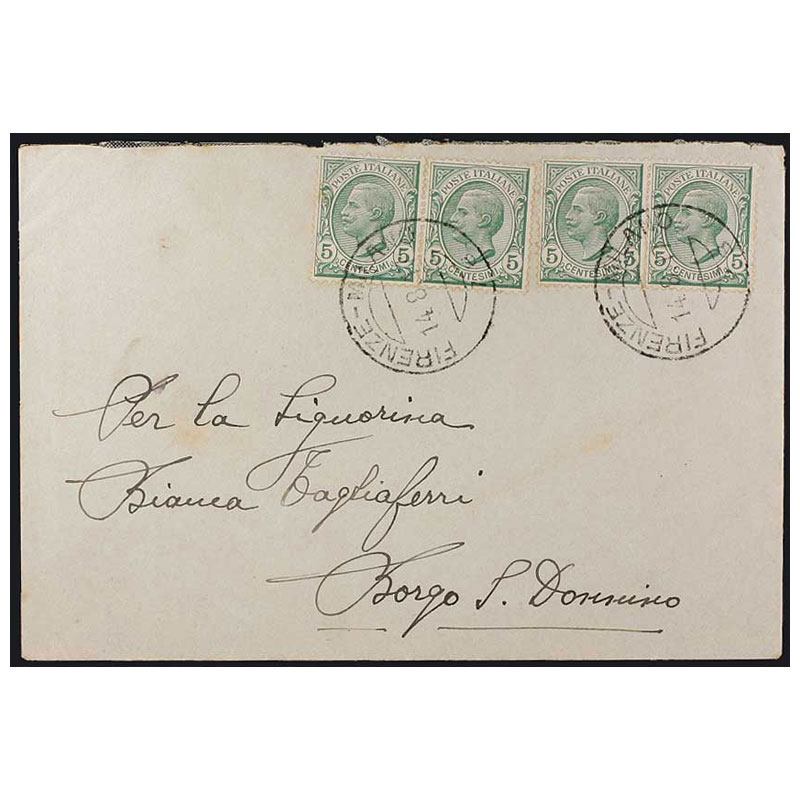 POSTE ITALIANE POSTE ITALIANE POSTE ITALIANE POSTE ITALIANE
5 5 5 5 5 5 5 5
CENTESIMI CENTESIMI CENTESIMI CENTESIMI
FIRENZE FIRENZE
Per la Signorina
Bianca Tagliaferri
Borgo S. Donnino